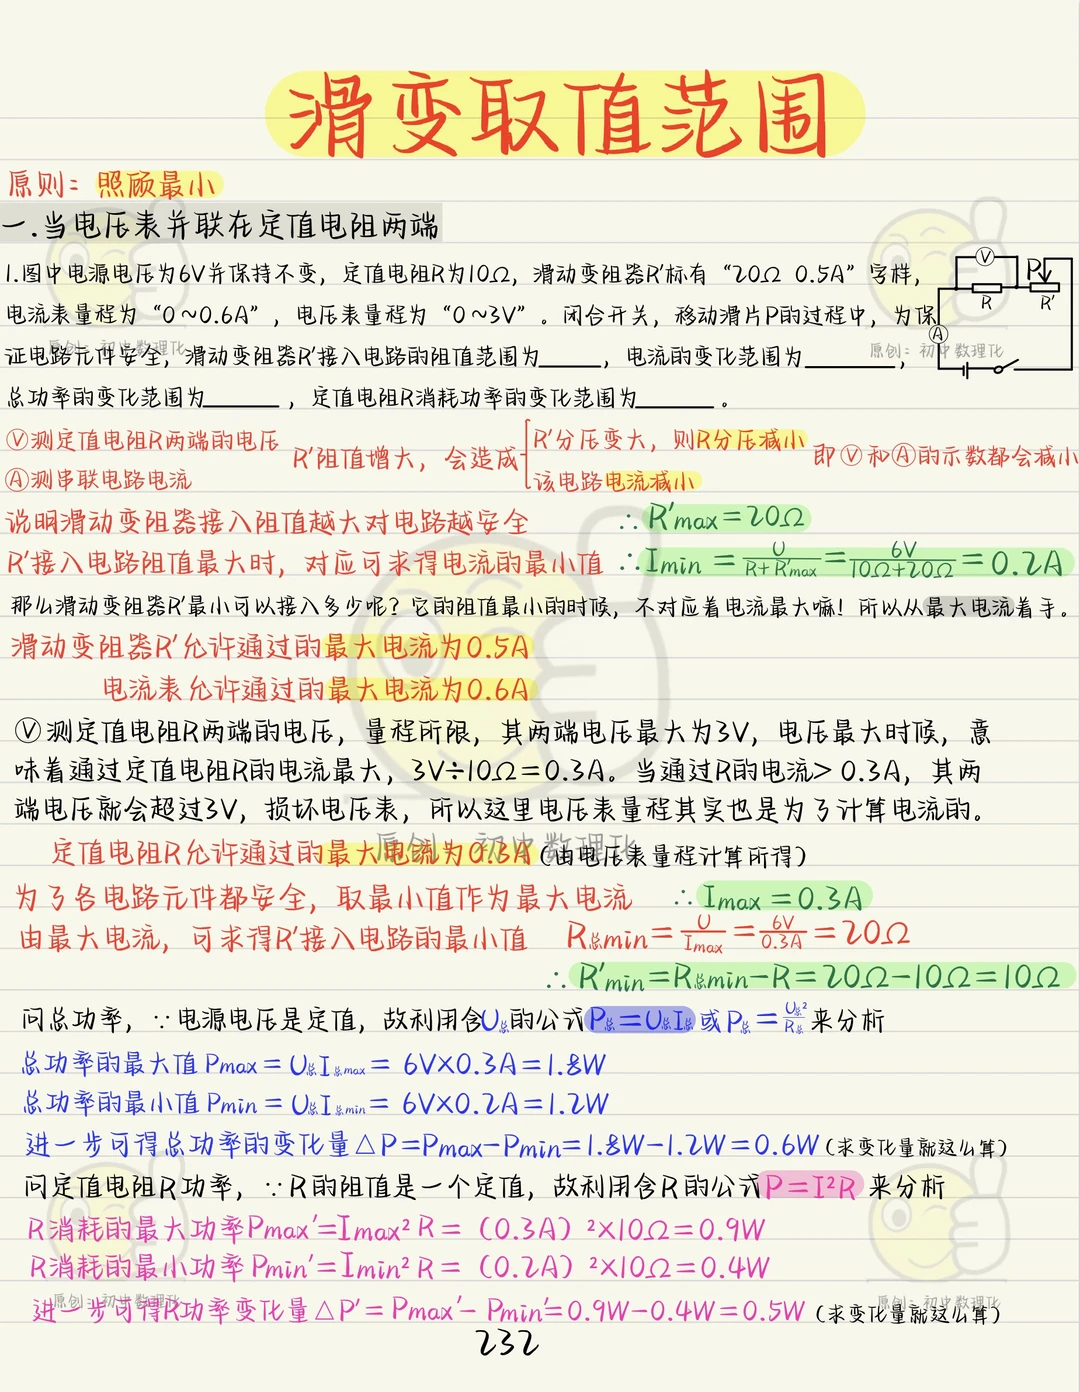 滑变取值范围
原则：照顾最小
一.当电压表并联在定值电阻两端
1.图中电源电压为6V并保持不变，定值电阻R为10Ω，滑动变阻器R′标有“20Ω 0.5A”字样，
电流表量程为“0～0.6A”，电压表量程为“0～3V”。闭合开关，移动滑片P的过程中，为保
证电路元件安全，滑动变阻器R′接入电路的阻值范围为_____，电流的变化范围为_______，
总功率的变化范围为______，定值电阻R消耗功率的变化范围为______。
V P R R′ A
原创：初中数理化
原创：初中数理化
Ⓥ测定值电阻R两端的电压
Ⓐ测串联电路电流
R′阻值增大，会造成
R′分压变大，则R分压减小
该电路电流减小
即Ⓥ和Ⓐ的示数都会减小
说明滑动变阻器接入阻值越大对电路越安全 ∴R′max=20Ω
R′接入电路阻值最大时，对应可求得电流的最小值 ∴Imin=U/(R+R′max)=6V/(10Ω+20Ω)=0.2A
那么滑动变阻器R′最小可以接入多少呢？它的阻值最小的时候，不对应着电流最大嘛！所以从最大电流着手。
滑动变阻器R′允许通过的最大电流为0.5A
电流表允许通过的最大电流为0.6A
Ⓥ测定值电阻R两端的电压，量程所限，其两端电压最大为3V，电压最大时候，意
味着通过定值电阻R的电流最大，3V÷10Ω=0.3A。当通过R的电流>0.3A，其两
端电压就会超过3V，损坏电压表，所以这里电压表量程其实也是为了计算电流的。
原创：初中数理化
定值电阻R允许通过的最大电流为0.3A(由电压表量程计算所得)
为了各电路元件都安全，取最小值作为最大电流 ∴Imax=0.3A
由最大电流，可求得R′接入电路的最小值 R总min=U/Imax=6V/0.3A=20Ω
∴R′min=R总min-R=20Ω-10Ω=10Ω
问总功率，∵电源电压是定值，故利用含U总的公式P总=U总I总或P总=U总²/R总来分析
总功率的最大值Pmax=U总I总max=6V×0.3A=1.8W
总功率的最小值Pmin=U总I总min=6V×0.2A=1.2W
进一步可得总功率的变化量△P=Pmax-Pmin=1.8W-1.2W=0.6W(求变化量就这么算)
问定值电阻R功率，∵R的阻值是一个定值，故利用含R的公式P=I²R来分析
R消耗的最大功率Pmax′=Imax²R=（0.3A）²×10Ω=0.9W
R消耗的最小功率Pmin′=Imin²R=（0.2A）²×10Ω=0.4W
原创：初中数理化
原创：初中数理化
进一步可得R功率变化量△P′=Pmax′-Pmin′=0.9W-0.4W=0.5W(求变化量就这么算)
232